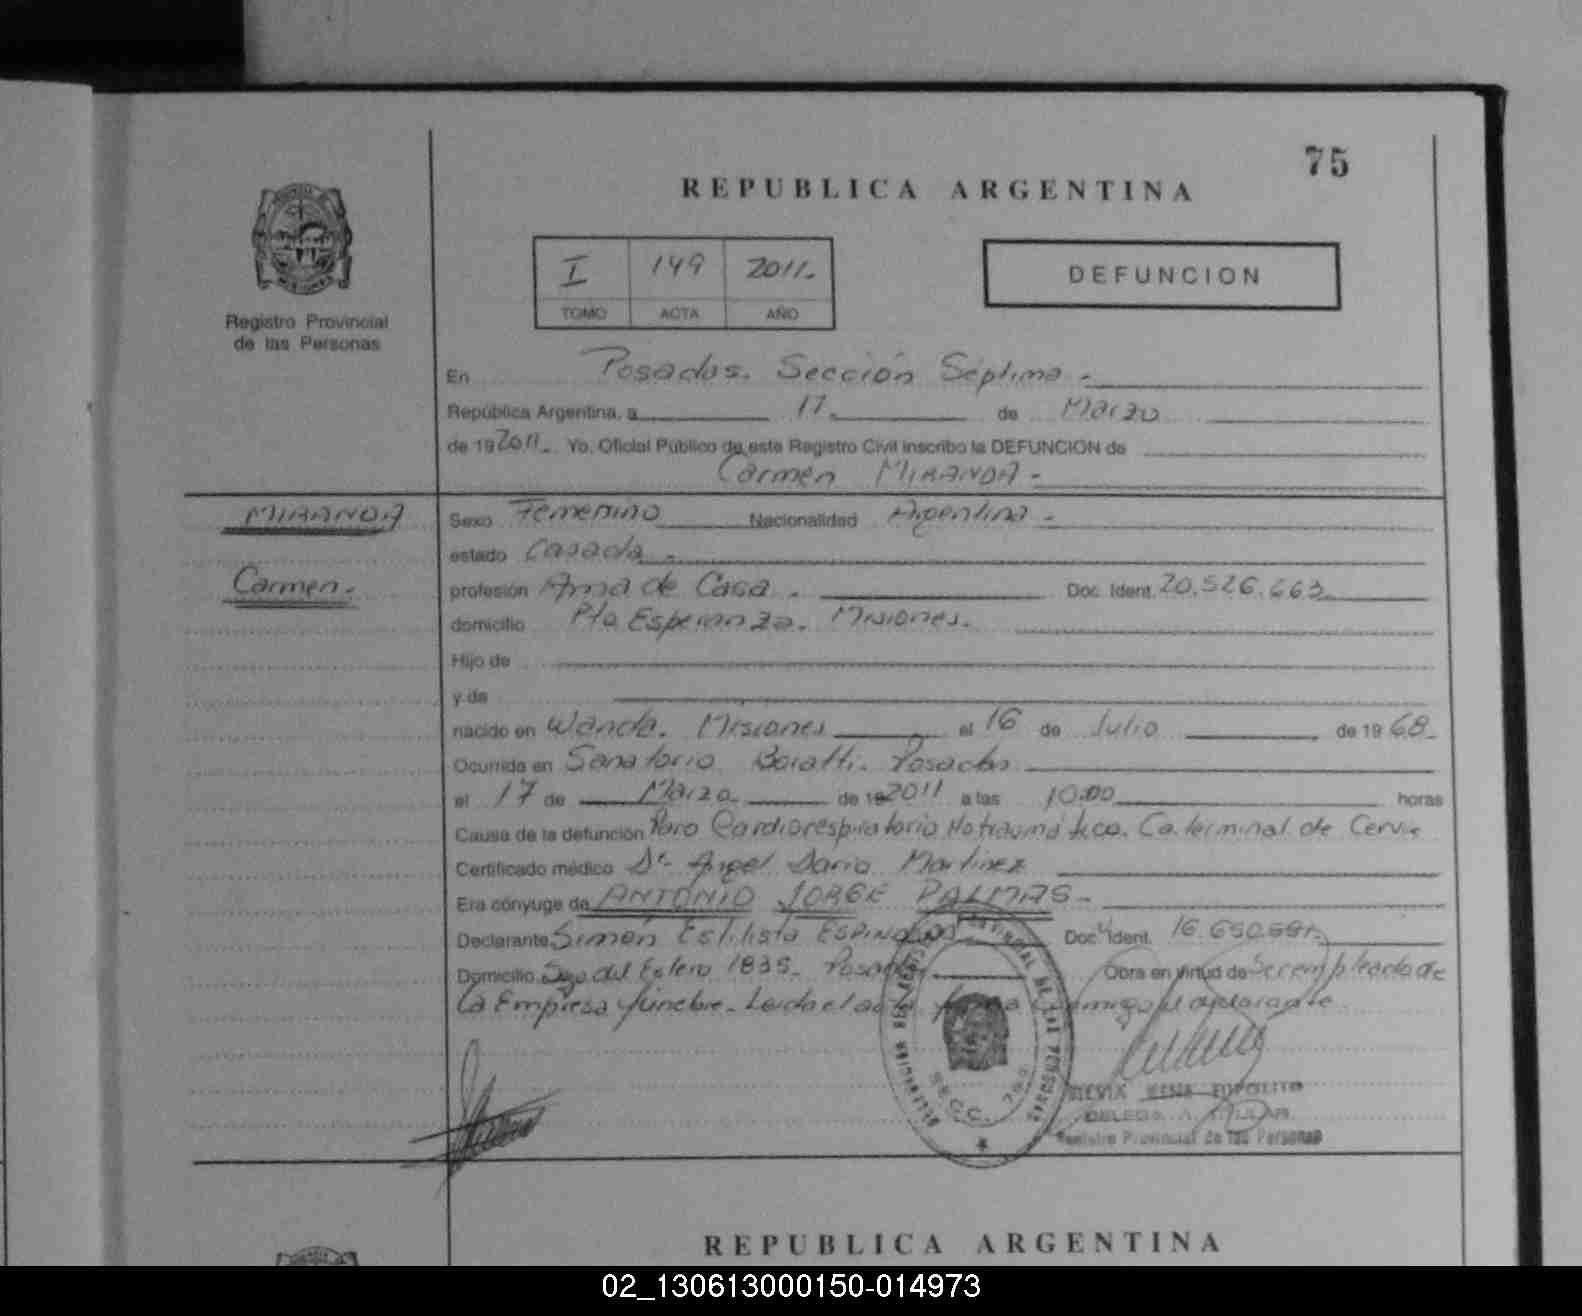 75
REPUBLICA ARGENTINA
I 149 2011.-
TOMO ACTA AÑO
DEFUNCION
Registro Provincial
de las Personas
En Posadas. Sección Séptima.-
República Argentina, a 17. de Marzo
de 19 2011.- Yo, Oficial Público de este Registro Civil inscribo la DEFUNCION de
Carmen MIRANDA.-
MIRANDA
Carmen.-
Sexo Femenino Nacionalidad Argentina.-
estado Casada.-
profesión Ama de Casa. Doc. Ident. 20.526.663.
domicilio Pto Esperanza. Misiones.
Hijo de
y de
nacido en Wanda. Misiones el 16 de Julio de 19 68.-
Ocurrida en Sanatorio Boratti. Posadas
el 17 de Marzo. de 19 2011 a las 10:00 horas
Causa de la defunción Paro Cardiorespiratorio No traumático. Ca. terminal de Cervix
Certificado médico Dr. Angel Dario Martinez
Era cónyuge de ANTONIO JORGE PALMAS.-
Declarante Simón Estilisto Doc. Ident. 16.650.591.
Domicilio Sgo del Estero 1835. Posadas Obra en virtud de Ser empleado de
la Empresa fúnebre. Leida el acta firma conmigo el declarante.
SECC. 7ma
DELEGADA TITULAR
Registro Provincial de las Personas
REPUBLICA ARGENTINA
02_130613000150-014973